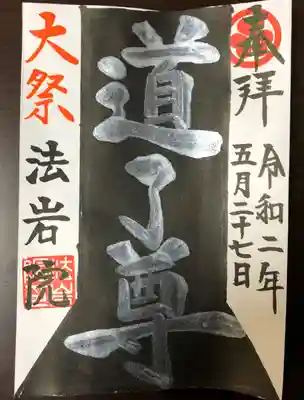 奉拝
令和二年
五月二十七日
道了尊
大祭
法岩院